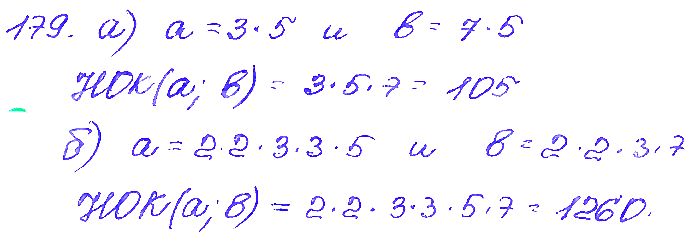 179. а) а = 3·5 и в = 7·5
НОК(а; в) = 3·5·7 = 105
б) а = 2·2·3·3·5 и в = 2·2·3·7
НОК(а; в) = 2·2·3·3·5·7 = 1260.